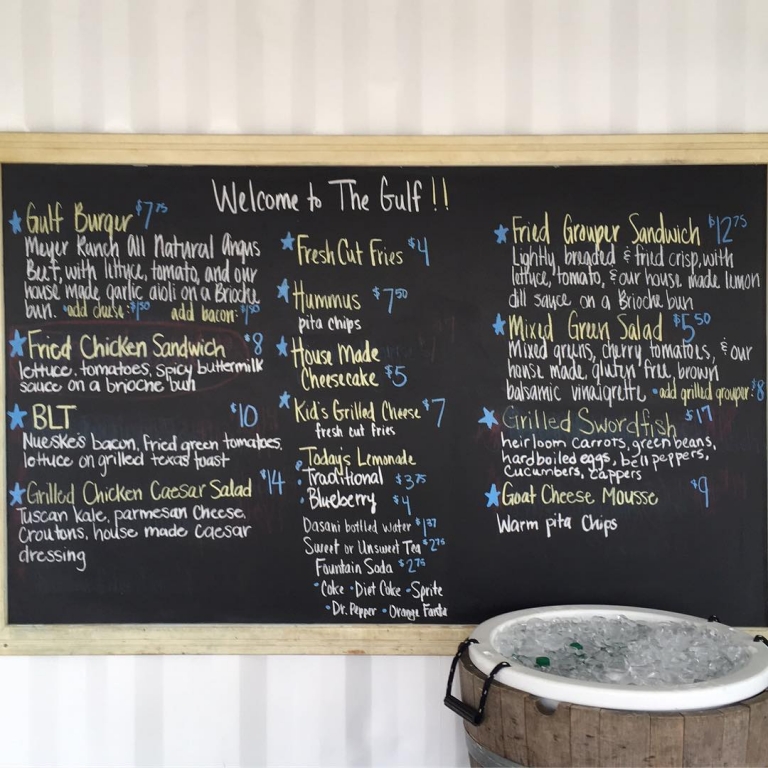 Welcome to The Gulf!!
Gulf Burger $7.75
Meyer Ranch All Natural Angus
Beef, with lettuce, tomato, and our
house made garlic aioli on a Brioche
bun. • add cheese: $1.50 add bacon: $1.50
Fried Chicken Sandwich $8
lettuce, tomatoes, spicy buttermilk
sauce on a brioche bun
BLT $10
Nueske's bacon, fried green tomatoes,
lettuce on grilled texas toast
Grilled Chicken Caesar Salad $14
Tuscan Kale, parmesan cheese,
Croutons, house made Caesar
dressing
Fresh Cut Fries $4
Hummus $7.50
pita chips
House Made
Cheesecake $5
Kid's Grilled Cheese $7
fresh cut fries
Today's Lemonade
• Traditional $3.75
• Blueberry $4
Dasani bottled water
Sweet or Unsweet Tea $2.75
Fountain Soda $2.75
• Coke • Diet Coke • Sprite
• Dr. Pepper • Orange Fanta
Fried Grouper Sandwich $12.75
Lightly breaded & fried crisp, with
lettuce, tomato, & our house made lemon
dill sauce on a Brioche bun
Mixed Green Salad $5.50
Mixed greens, cherry tomatoes, & our
house made, gluten free, brown
balsamic vinaigrette • add grilled grouper: $8
Grilled Swordfish $17
heirloom carrots, green beans,
hardboiled eggs, bell peppers,
cucumbers, cappers
Goat Cheese Mousse $9
Warm pita Chips